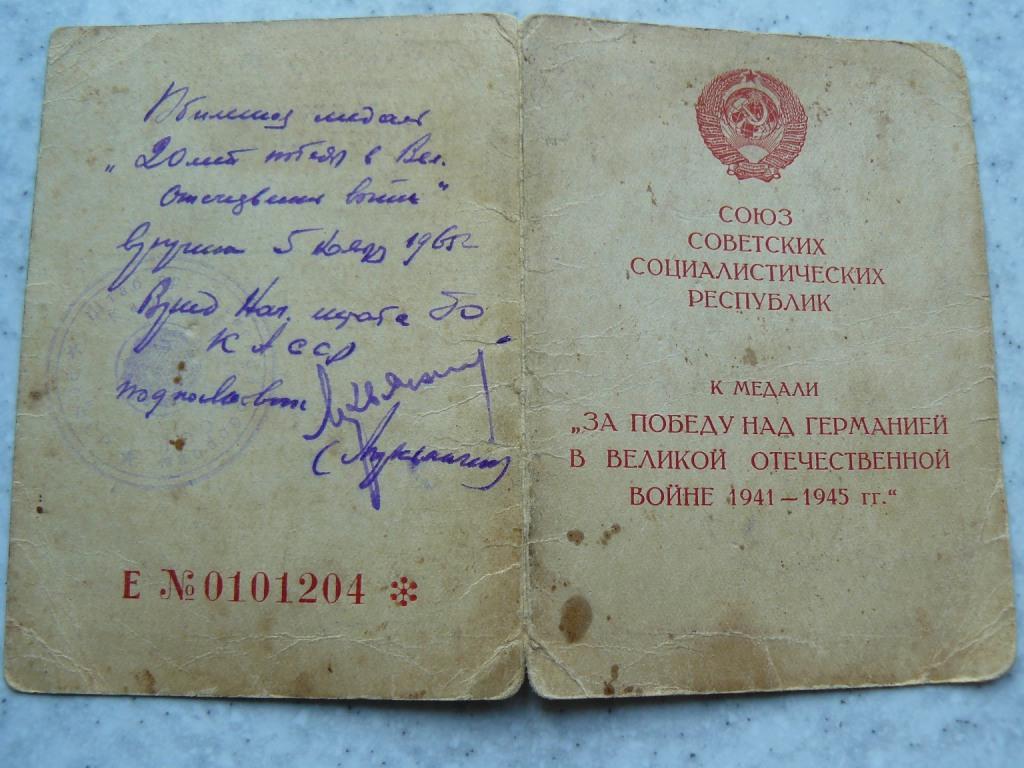 Юбилейная медаль
„20 лет победы в Вел.
Отечественной войне"
вручена 5 ноября 1965 г
Врид Нач. штаба ГО
КАССР
подполковник
Е №0101204
СОЮЗ
СОВЕТСКИХ
СОЦИАЛИСТИЧЕСКИХ
РЕСПУБЛИК
К МЕДАЛИ
„ЗА ПОБЕДУ НАД ГЕРМАНИЕЙ
В ВЕЛИКОЙ ОТЕЧЕСТВЕННОЙ
ВОЙНЕ 1941—1945 гг.“